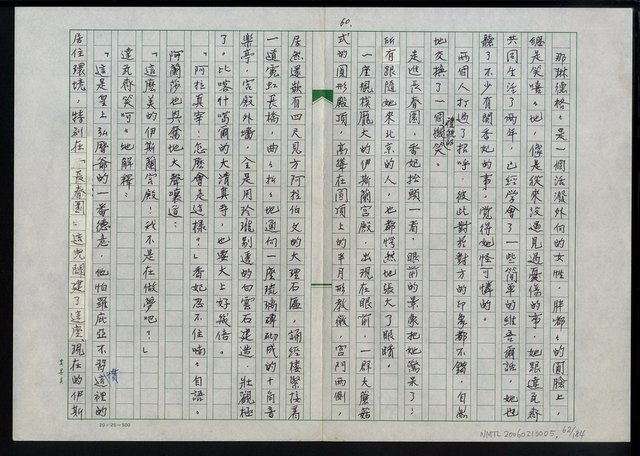 60.
那琳德格々是一個活潑外向的女性，胖都々的圓臉上，
總是笑嘻々地，像是從來沒遇見過憂傷的事，她跟達克齊
共同生活了兩年，已經學會了一些簡單的維吾爾話，她也
聽了不少有關香妃的事，覺得她怪可憐的。
兩個人打過了招呼，彼此對於對方的印象都不錯，自然
地交換了一個禮貌的微笑。
走進長春園，香妃抬頭一看，眼前的景象把她驚呆了！
所有跟隨她來北京的人，也都愕然地張大了眼睛。
一座規模龐大的伊斯蘭宮殿，出現在眼前，一群大蘑菇
式的圓形殿頂，高聳在圓頂上的半月形教徽，宮門兩側，
居然還嵌有四尺見方阿拉伯文的大理石匾，誦經樓緊接着
一道霓虹長橋，曲々折々地通向一座琉璃磚砌成的十角音
樂亭，宮殿外墻，全是用玲瓏剔透的白雲石建造，壯觀極
了。比喀什噶爾的大清真寺，也要大上好幾倍。
「阿拉真宰！怎麼會是這樣？」香妃忍不住喃々自語。
阿蘭莎也興奮地大聲嚷道：
「這麼美的伊斯蘭宮殿！我不是在做夢吧？」
達克齊笑呵々地解釋：
「這是皇上弘曆爺的一番德意，他怕羅庇亞不習慣這裡的
居住環境，特別在「長春園」這兒闢建了這座，現在的伊斯
20×25=500
NMTL20060210005. 62/184